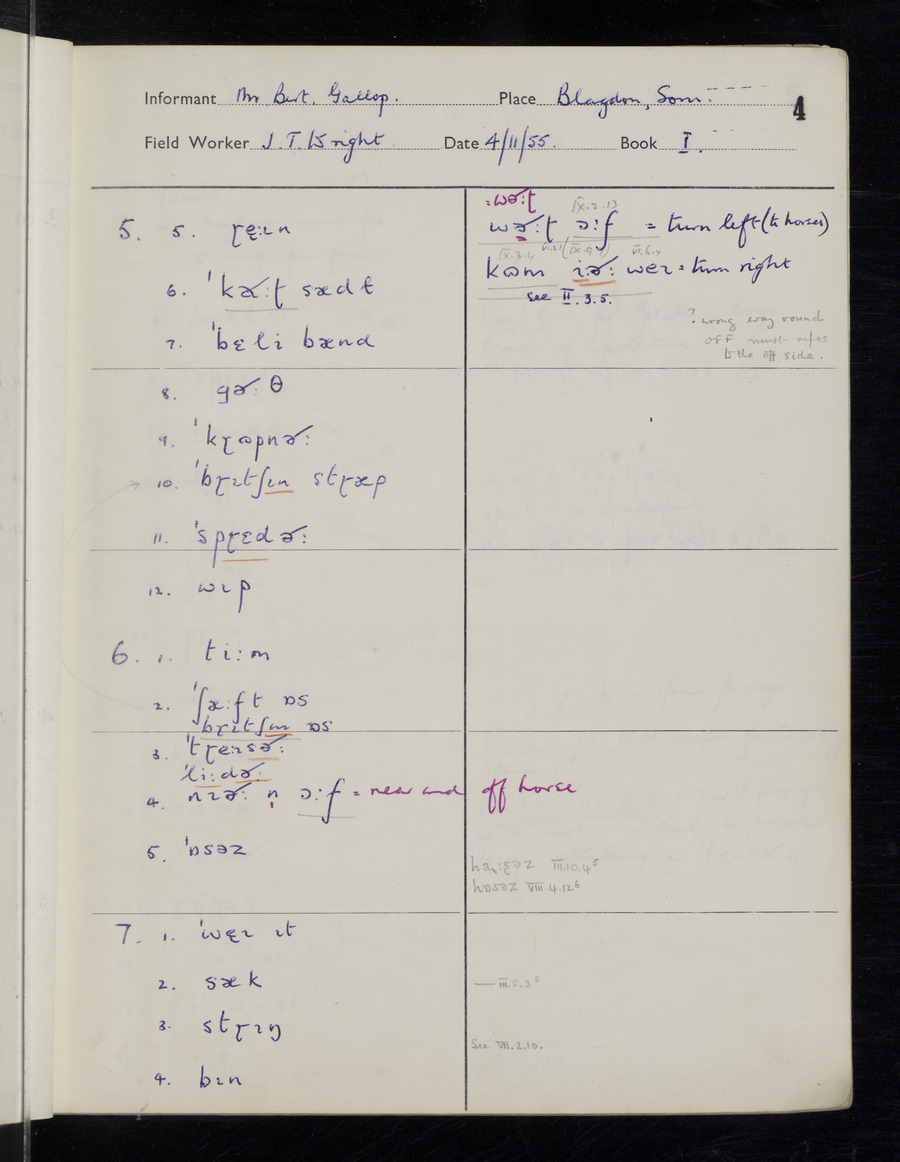 Informant Mr Bert. Gallop. Place Blagdon, Som.
4
Field Worker J.T. Wright Date 4/11/55. Book I.
5. 5. ɽɛ̣:ɪn
6. 'kɚ:ʈ sædɫ
7. 'bɛli bænd
8. gɚ:θ
9. 'kɽɒpnɚ:
10. 'bɽɪtʃɪn stɽæp
11. 'spɽɛdɚ:
12. wɪp
6. 1. ti:m
2. 'ʃæ:ft ɒs
'bɽɪtʃɪn ɒs
3. 'tɽeɪsɚ:
'li:dɚ:
4. nɪɚ: n̩ ɔ:f = near and off horse
5. 'ɒsəz
7. 1. 'wɛ̣ɪ ɪt
2. sæk
3. stɽɪŋ
4. bɪn
:wɚ:ʈ
IX.2.13
wɚ:ʈ ɔ:f = turn left (to horses)
IX.3.4 VI.6.4
kɒm i:ɚ: weɪ = turn right
see II.3.5.
? wrong way round
off must refer
to the off side.
III.10.4⁵
hɒsəz VIII.4.12⁶
— III.5.3²
See VII.2.10.